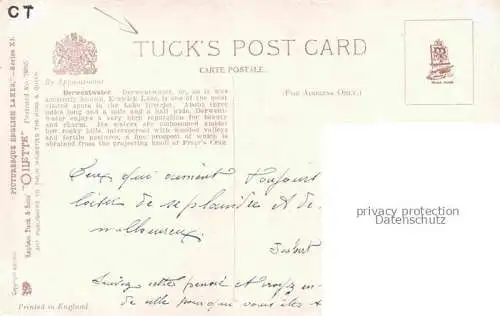 CT
TUCK'S POST CARD
CARTE POSTALE.
By Appointment
(FOR ADDRESS ONLY.)
Derwentwater Derwentwater, or, as it was
anciently named, Keswick Lake, is one of the most
visited spots in the Lake District. About three
miles long and a mile and a half wide, Derwent-
water enjoys a very high reputation for beauty
and charm. Its waters are embosomed amidst
low rocky hills, interspersed with wooded valleys
and fertile pastures, a fine prospect of which is
obtained from the projecting knoll of Friar's Crag
PICTURESQUE ENGLISH LAKES,"—Series XI.
Raphael Tuck & Sons' "OILETTE" Postcard No.
ART PUBLISHERS TO THEIR MAJESTIES THE KING & QUEEN
Printed in England
Ceux qui aiment toujours
de se plaindre et de
malheureux
pensée et
de elle pourquoi vous êtes
privacy protection
oldthing.de